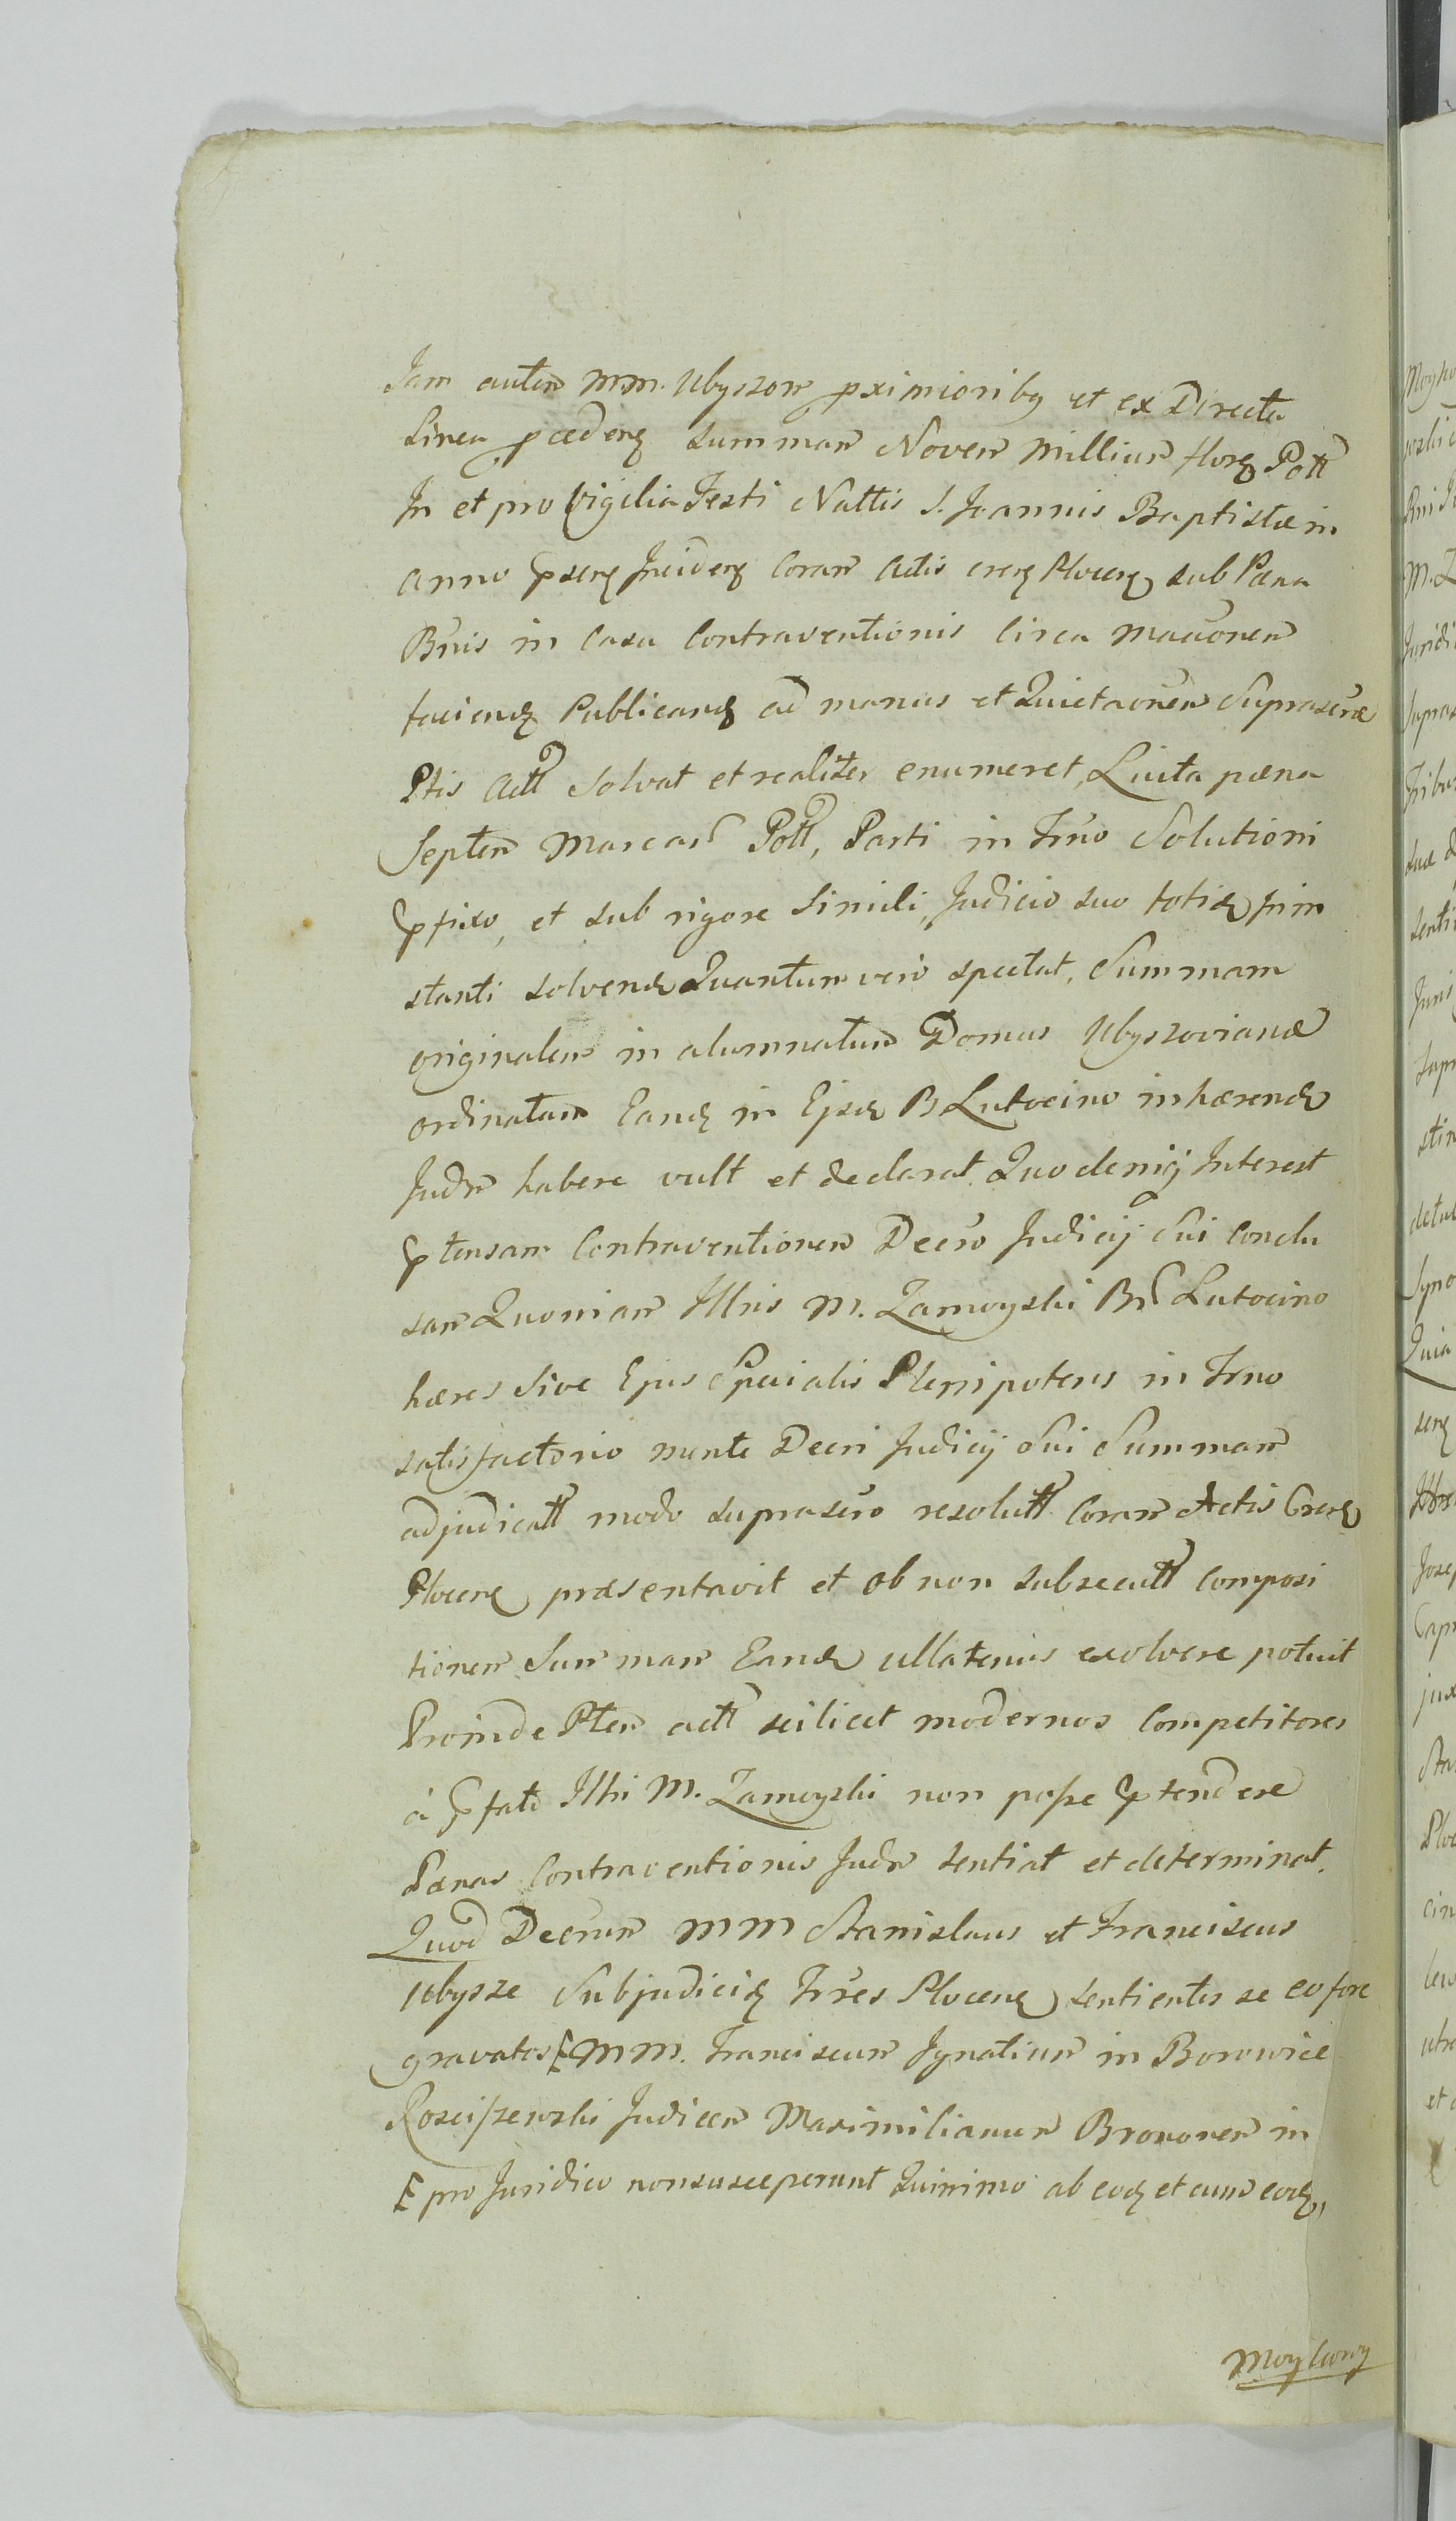 Jam autem MM. Ubyszom pximioribq et ex Directa
Linea pcedenz summam Novem Millium florz Poll
In et pro Vigilia Festi Nattis S. Joannis Baptistæ in
anno pserz Incidenz Coram Actis Crenz Plocenz sub Pæna
Bnis in Casu Contraventionis Circa Macõnem
faciendz Publicandz ad manus et Quietaõnem Suprascræ
Ptis Actt Solvat et realiter enumeret, Luita pæna
Septem Marcar Poll, Parti in Trno Solutioni
pfixo, et sub rigore Simili, Judicio suo totidz pin
stanti solvendz Quantum vero spectat, Summam
originalem in alumnatum Domus Ubyszovianæ
ordinatam Eandz in Ejsdz B Lutocino inhærendz
Judm habere vult et declarat. Quo deniq Interest
ptensam Contraventionem Decro Judicij Sui Conclu
sam Quoniam Illris M. Zamoyski Br Lutocino
hæres Sive Ejus Specialis Plenipotens in Trno
satisfactorio mente Decri Judicij Sui Summam
adjudicatt modo suprascro resolutt Coram Actis Crenz
Plocenz præsentavit et ob non subsecutt Composi
tionem Summam Eandz ullatenus exolvere potuit
Proinde Ptem actt scilicet modernos Competitores
à pfato Illri M. Zamoyski non posse ptendere
Pænas Contraventionis Judm sentiat et determinat.
Quod Decrum MM Stanislaus et Franciscus
Ubysze Subjudicidz Trres Plocenz sentientes se eo fore
gravatos MM. Franciscum Ignatium in Borowice
Rosciszewski Judicem Maximilianum Bromonem in
pro Juridico non susceperunt Quinimo ab eodz et cum eodz,